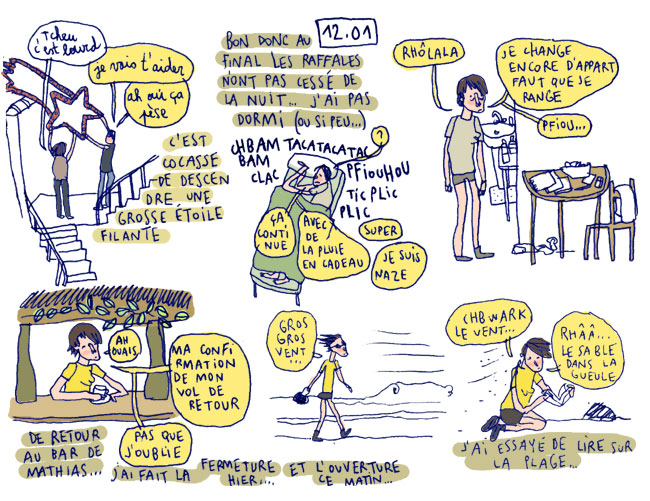 TCHEU
C'EST LOURD
JE VAIS T'AIDER
AH OUI ÇA
PÈSE
C'EST
COCASSE
DE DESCEN
DRE UNE
GROSSE ÉTOILE
FILANTE
12.01
BON DONC AU
FINAL LES RAFFALES
N'ONT PAS CESSÉ DE
LA NUIT... J'AI PAS
DORMI (OU SI PEU...)
?
CHBAM TACATACATAC
BAM
CLAC
PFIOUHOU
TIC PLIC
PLIC
ÇA
CONTI
NUE
AVEC
DE
LA PLUIE
EN CADEAU
SUPER
JE SUIS
NAZE
RHÔLALA
JE CHANGE
ENCORE D'APPART
FAUT QUE JE
RANGE
PFIOU...
AH
OUAIS
MA CONFI
RMATION
DE MON
VOL DE
RETOUR
PAS QUE
J'OUBLIE
DE RETOUR
AU BAR DE
MATHIAS...
J'AI FAIT LA FERMETURE
HIER...
ET L'OUVERTURE
CE MATIN...
GROS
GROS
VENT
...
CHBWARK
LE VENT...
RHÂÂ...
LE SABLE
DANS LA
GUEULE
J'AI ESSAYÉ DE LIRE SUR
LA PLAGE...